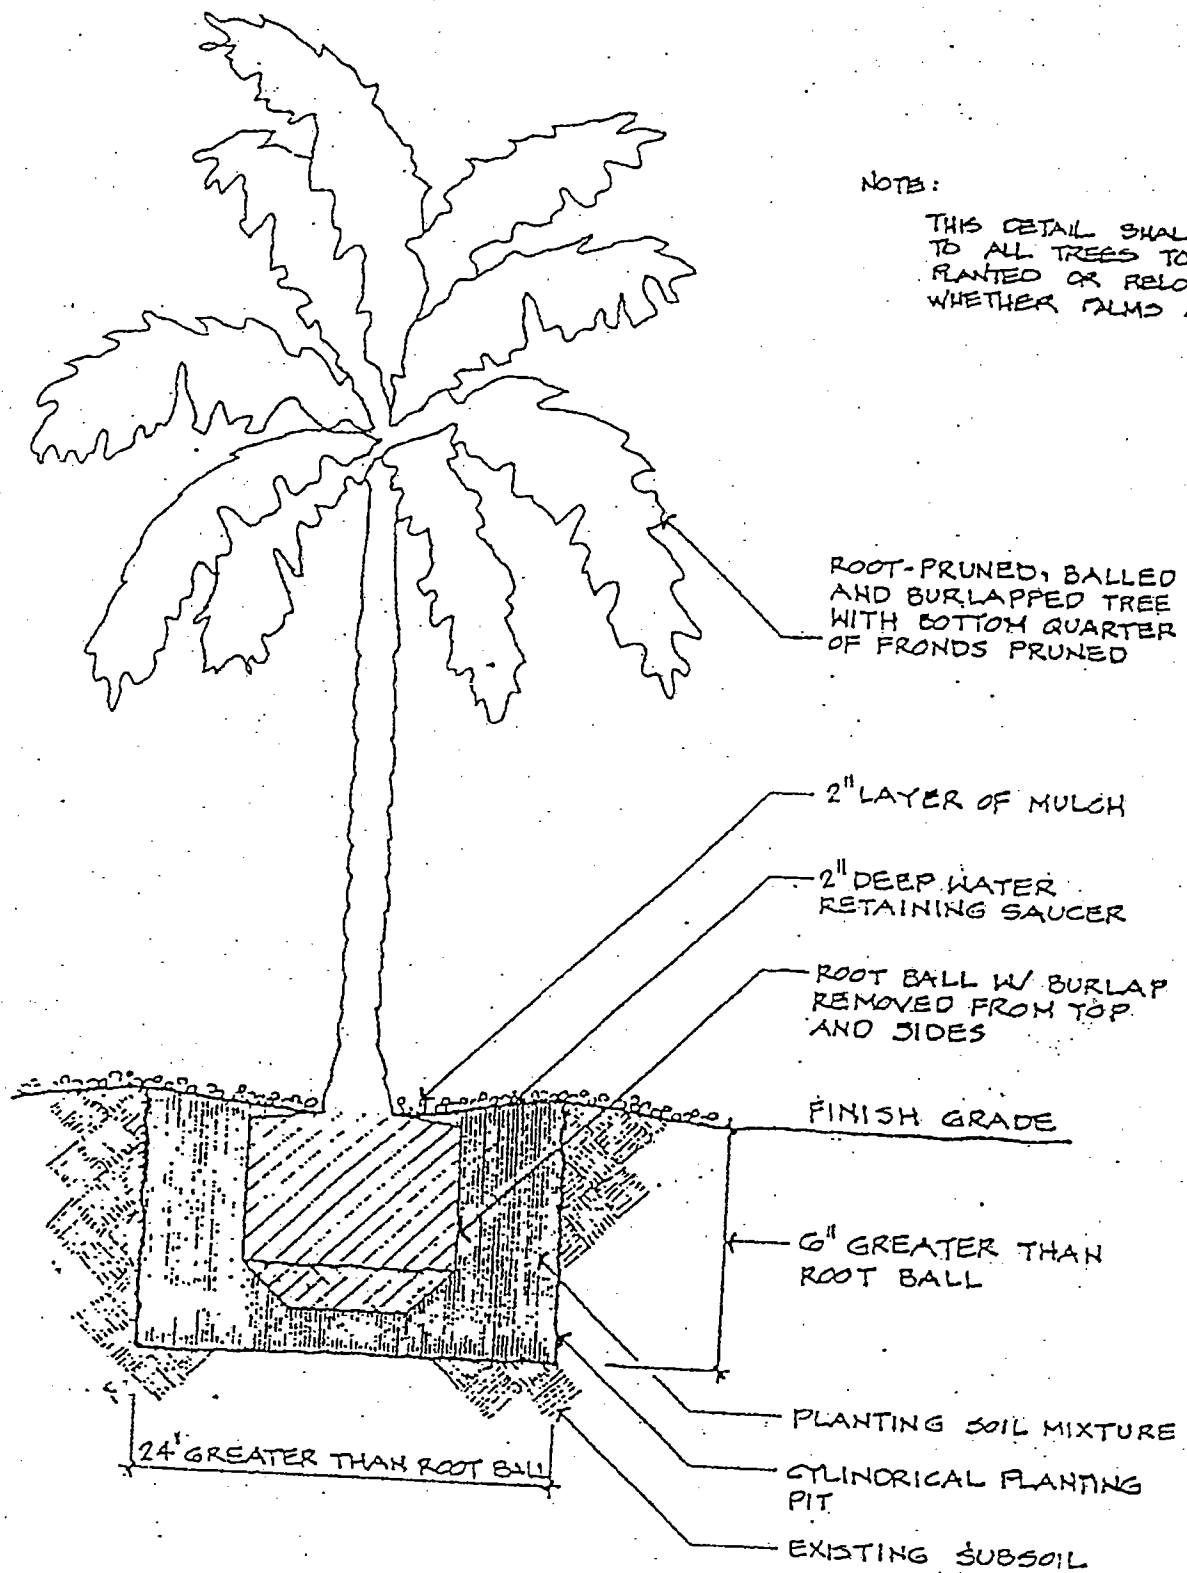 NOTE:
THIS DETAIL SHAL
TO ALL TREES TO
PLANTED OR RELO
WHETHER PALMS
ROOT-PRUNED, BALLED
AND BURLAPPED TREE
WITH BOTTOM QUARTER
OF FRONDS PRUNED
2" LAYER OF MULCH
2" DEEP WATER
RETAINING SAUCER
ROOT BALL W/ BURLAP
REMOVED FROM TOP
AND SIDES
FINISH GRADE
6" GREATER THAN
ROOT BALL
PLANTING SOIL MIXTURE
24' GREATER THAN ROOT BALL
CYLINDRICAL PLANTING
PIT
EXISTING SUBSOIL